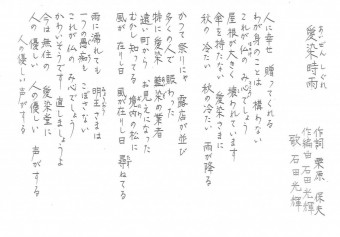 愛染時雨
あいぜんしぐれ
作詞 栗原 保夫
作編曲 石田光輝
歌 石田光輝
人の幸せ 贈ってくれる
わが身のことは 構わない
これが仏の み心でしょう
屋根が大きく 壊われています
傘を持たない 愛染さまに
秋の冷たい 秋の冷たい 雨が降る
かつて祭りにゃ 露店が並び
多くの人で 賑わった
特に愛染 藍染の業者
遠い町から お見えになった
むかし知ってる 境内の松に
風が 在りし日 風が在りし日 尋ねてる
雨に濡れても 明王さまは
一つの愚痴も こぼさない
これが仏の み心でしょう
かわいそうです 直しましょうよ
今は無住の 愛染堂に
人の優しい 人の優しい 声がする
人の優しい 声がする